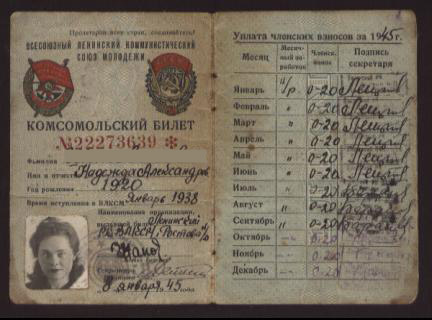 Пролетарии всех стран, соединяйтесь!
ВСЕСОЮЗНЫЙ ЛЕНИНСКИЙ КОММУНИСТИЧЕСКИЙ
СОЮЗ МОЛОДЕЖИ
КОМСОМОЛЬСКИЙ БИЛЕТ
№22273639 *
Фамилия
Имя и отчество Надежда Александр
Год рождения 1920
Время вступления в ВЛКСМ Январь 1938
Наименование организации,
Ленинский
РК ВЛКСМ, Ростова н/Д
8 января 45 года
Уплата членских взносов за 1945 г.
Месяц Месячный заработок Членск. взнос Подпись секретаря
Январь н/р 0-20
Февраль " 0-20
Март " 0-20
Апрель " 0-20
Май " 0-20
Июнь " 0-20
Июль " 0-20
Август " 0-20
Сентябрь " 0-20
Октябрь 0-20
Ноябрь 0-20
Декабрь 0-20